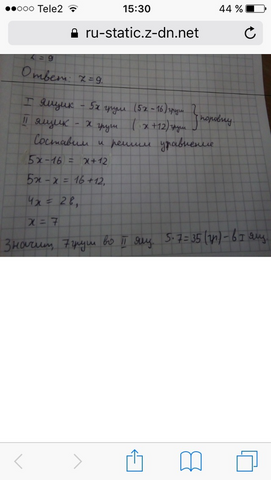 Tele2 15:30 44 %
ru-static.z-dn.net
z = 9
Ответ z=9
I ящик - 5x груш (5x-16) груш } поровну
II ящик - x груш ( x+12) груш
Составим и решим уравнение
5x-16 = x+12
5x-x = 16+12,
4x = 28,
x = 7
Значит 7 груш во II ящ 5·7=35 (гр) - в I ящ